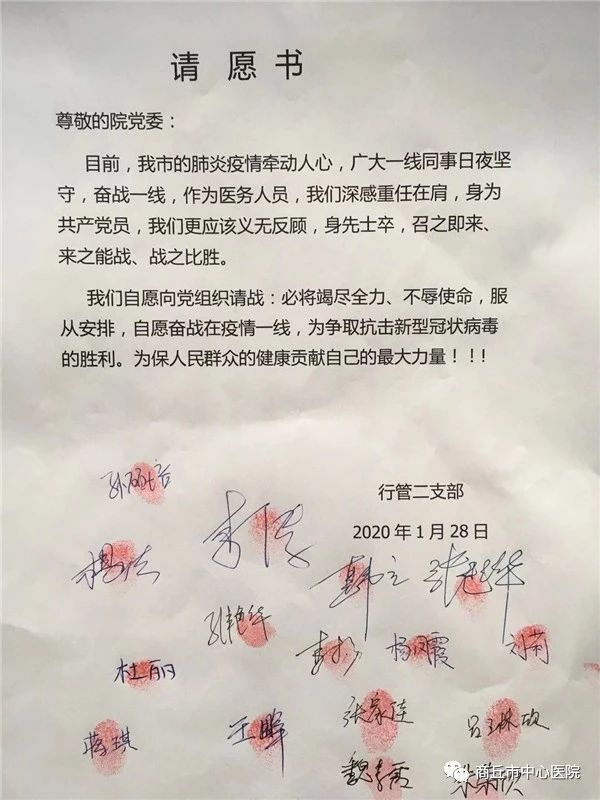 请愿书
尊敬的院党委：
目前，我市的肺炎疫情牵动人心，广大一线同事日夜坚
守，奋战一线，作为医务人员，我们深感重任在肩，身为
共产党员，我们更应该义无反顾，身先士卒，召之即来、
来之能战、战之比胜。
我们自愿向党组织请战：必将竭尽全力、不辱使命，服
从安排，自愿奋战在疫情一线，为争取抗击新型冠状病毒
的胜利。为保人民群众的健康贡献自己的最大力量！！！
行管二支部
2020年1月28日
张艳华
孙艳华
杨凤霞
刘莉
杜丽
蒋琪
王晖
张家佳
商丘市中心医院